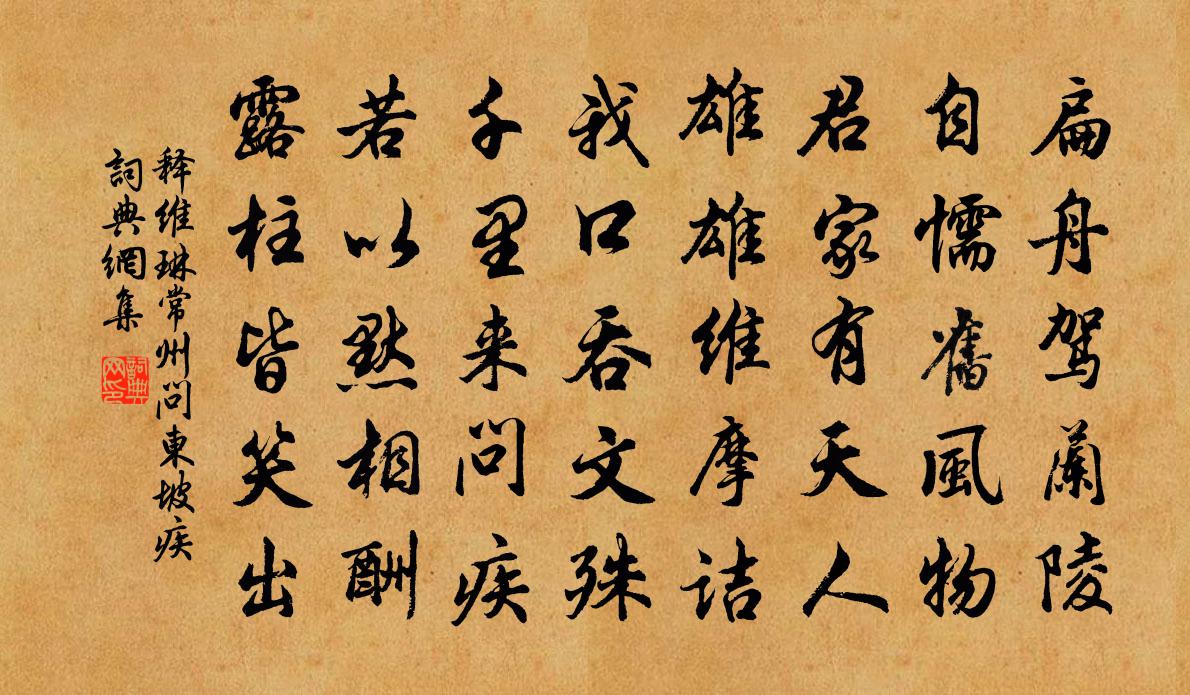 扁舟駕蘭陵
自懦舊風物
君家有天人
雄雄維摩詰
我口吞文殊
千里来問疾
若以默相酬
露柱皆笑出
释維琳常州問東坡疾
詞典網集
詞典网印